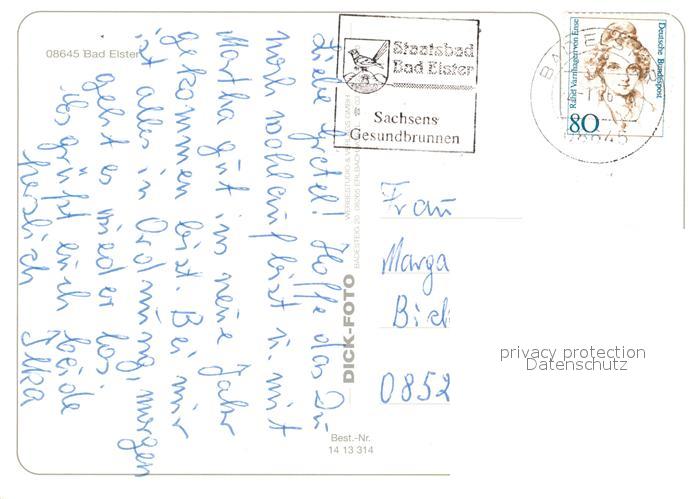 08645 Bad Elster
Staatsbad
Bad Elster
Sachsens
Gesundbrunnen
Deutsche Bundespost
Rahel Varnhagen von Ense
80
Liebe Gretel! Hoffe das Du
noch wohlauf bist u. mit
Martha gut ins neue Jahr
gekommen bist. Bei mir
ist alles in Ordnung, morgen
geht es wieder los.
Es grüßt Euch beide
herzlich Ilka
DICK-FOTO
Best.-Nr.
14 13 314
Frau
Marga
0852
privacy protection
Datenschutz